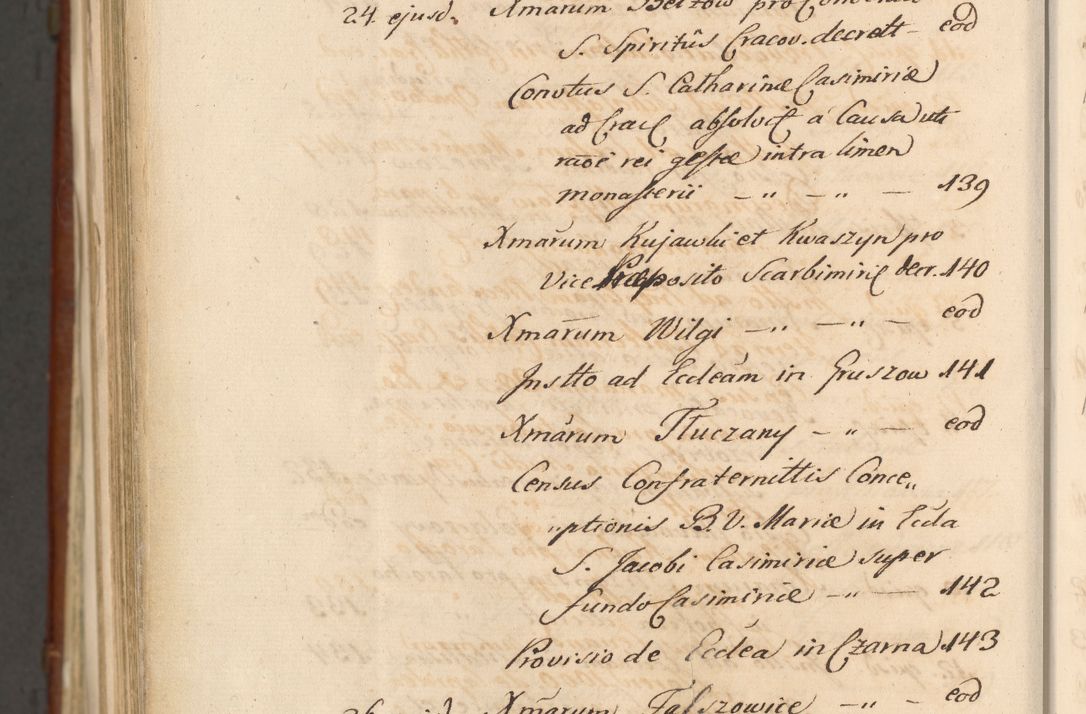 24. ejusd. Xmarum Bełzow pro Conventu
S. Spiritûs Cracov. decrett – eod
Convtus S. Catharinæ Casimiriæ
ad Crac absolvit' a Causa utt
raōe rei gestæ intra limen
monasterii – „ – „ – 139
Xmarum Kujawki et Kwaszyn pro
Vice Præposito Scarbimiriē decr. 140
Xmarum Wilgi – „ – „ – eod
Instto ad Eccleam in Gruszow 141
Xmarum Tłuczany – „ – eod
Census Confraternittis Conce„
„ptionis B.V. Mariæ in Eccla
S. Jacobi Casimiriæ super
fundo Casimiriæ – „ – 142
Provisio de Ecclea in Czarna 143
26. ejusd. Xmarum Falszowice – „ – eod